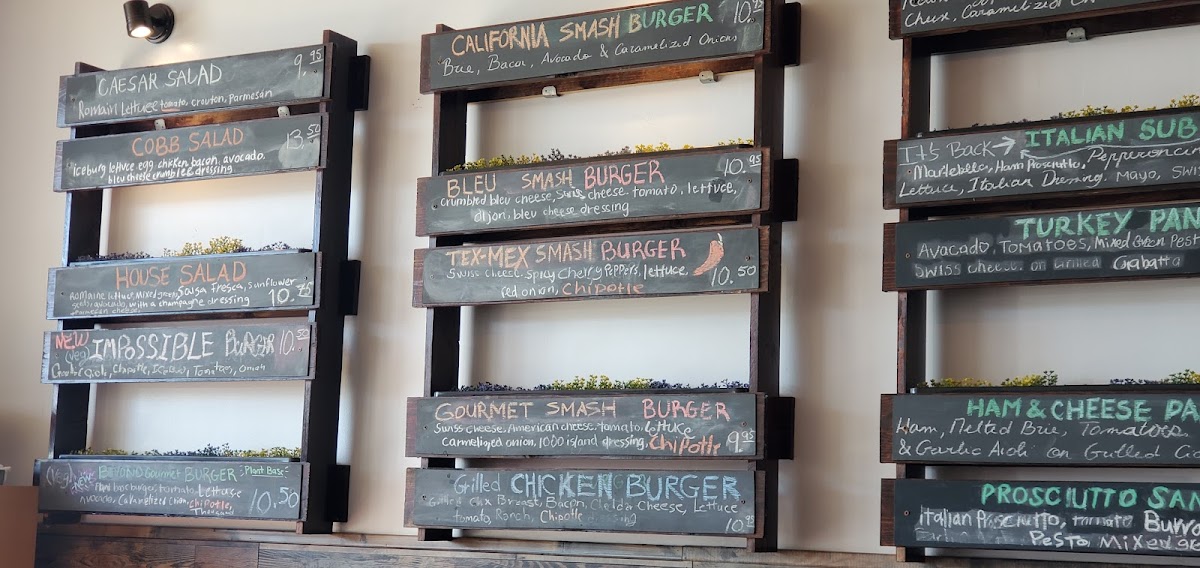 CAESAR SALAD 9.95
Romain Lettuce tomato, crouton, Parmesan
COBB SALAD 13.50
iceburg lettuce, egg, chicken, bacon, avocado.
bleu cheese crumbles dressing
HOUSE SALAD
Romaine lettuce, Mixed greens, Salsa Fresca, Sunflower
with a champagne dressing 10.75
parmesan cheese.
NEW IMPOSSIBLE BURGER 10.50
(veg)
Chipotle, Iceberg, Tomatoes, Onion
(Veg) BEYOND Gourmet BURGER Plant Base
burger, tomato, Lettuce
Avocado, Caramelized Onion, Chipotle 10.50
Thousand
CALIFORNIA SMASH BURGER 10.95
Brie, Bacon, Avocado & Caramelized Onions
BLEU SMASH BURGER 10.95
crumbled bleu cheese, swiss cheese tomato, lettuce,
dijon, bleu cheese dressing
TEX-MEX SMASH BURGER
Swiss cheese, spicy cherry Peppers, lettuce,
red onion, Chipotle 10.50
GOURMET SMASH BURGER
Swiss cheese, American cheese, tomato, lettuce
Carmelized onion, 1000 island dressing, Chipotle 9.95
Grilled CHICKEN BURGER
Breast, Bacon, Cheese, Lettuce
tomato, Ranch, Chipotle dressing 10.95
Cheux, Caramelized On
It's Back → ITALIAN SUB
Mortadella, Ham Prosciutto, Pepperoncini
Lettuce, Italian Dressing, Mayo, Swis
TURKEY PAN
Avocado, Tomatoes, Mixed Green Pest
Swiss cheese on Grilled Ciabatta
HAM & CHEESE PA
Ham, Melted Brie, Tomatoes
& Garlic Aioli on Grilled Cia
PROSCIUTTO SAN
Italian Prosciutto, tomato Burra
Pesto, Mixed gr